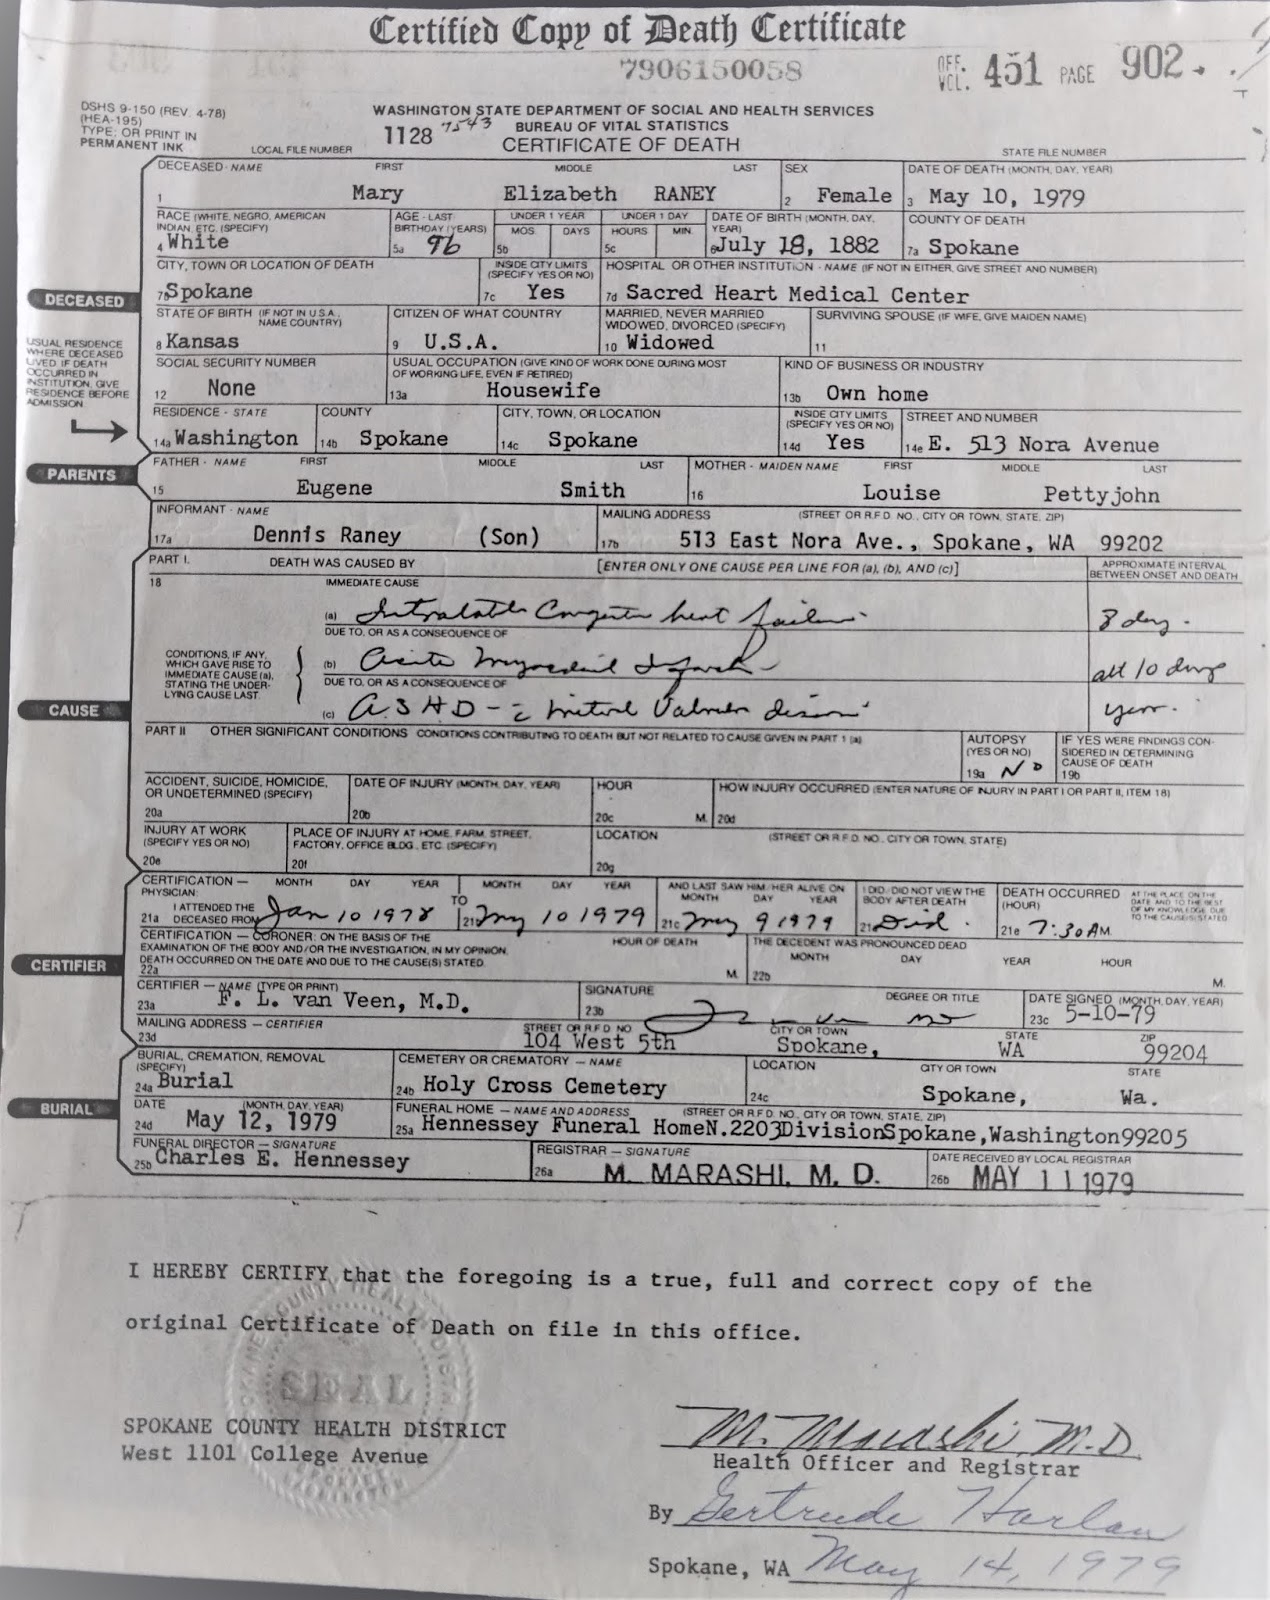 Certified Copy of Death Certificate
7906150058
OFF. VOL. 451 PAGE 902
DSHS 9-150 (REV. 4-78)
(HEA-195)
TYPE, OR PRINT IN
PERMANENT INK
WASHINGTON STATE DEPARTMENT OF SOCIAL AND HEALTH SERVICES
BUREAU OF VITAL STATISTICS
CERTIFICATE OF DEATH
LOCAL FILE NUMBER 1128 7543
STATE FILE NUMBER
DECEASED - NAME FIRST MIDDLE LAST SEX DATE OF DEATH (MONTH, DAY, YEAR)
1 Mary Elizabeth RANEY 2 Female 3 May 10, 1979
RACE (WHITE, NEGRO, AMERICAN INDIAN, ETC. (SPECIFY) AGE - LAST BIRTHDAY (YEARS) UNDER 1 YEAR MOS. DAYS UNDER 1 DAY HOURS MIN. DATE OF BIRTH (MONTH, DAY, YEAR) COUNTY OF DEATH
4 White 5a 96 5b 5c 6 July 18, 1882 7a Spokane
DECEASED
CITY, TOWN OR LOCATION OF DEATH INSIDE CITY LIMITS (SPECIFY YES OR NO) HOSPITAL OR OTHER INSTITUTION - NAME (IF NOT IN EITHER, GIVE STREET AND NUMBER)
7b Spokane 7c Yes 7d Sacred Heart Medical Center
STATE OF BIRTH (IF NOT IN U.S.A., NAME COUNTRY) CITIZEN OF WHAT COUNTRY MARRIED, NEVER MARRIED WIDOWED, DIVORCED (SPECIFY) SURVIVING SPOUSE (IF WIFE, GIVE MAIDEN NAME)
8 Kansas 9 U.S.A. 10 Widowed 11
USUAL RESIDENCE
WHERE DECEASED
LIVED IF DEATH
OCCURRED IN
INSTITUTION, GIVE
RESIDENCE BEFORE
ADMISSION.
SOCIAL SECURITY NUMBER USUAL OCCUPATION (GIVE KIND OF WORK DONE DURING MOST OF WORKING LIFE, EVEN IF RETIRED) KIND OF BUSINESS OR INDUSTRY
12 None 13a Housewife 13b Own home
RESIDENCE - STATE COUNTY CITY, TOWN, OR LOCATION INSIDE CITY LIMITS (SPECIFY YES OR NO) STREET AND NUMBER
14a Washington 14b Spokane 14c Spokane 14d Yes 14e E. 513 Nora Avenue
PARENTS
FATHER - NAME FIRST MIDDLE LAST MOTHER - MAIDEN NAME FIRST MIDDLE LAST
15 Eugene Smith 16 Louise Pettyjohn
INFORMANT - NAME MAILING ADDRESS (STREET OR R.F.D. NO., CITY OR TOWN, STATE, ZIP)
17a Dennis Raney (Son) 17b 513 East Nora Ave., Spokane, WA 99202
PART I. DEATH WAS CAUSED BY [ENTER ONLY ONE CAUSE PER LINE FOR (a), (b), AND (c)] APPROXIMATE INTERVAL BETWEEN ONSET AND DEATH
18 IMMEDIATE CAUSE
(a) Intractable Congestive heart failure 8 day.
DUE TO, OR AS A CONSEQUENCE OF
CONDITIONS, IF ANY,
WHICH GAVE RISE TO
IMMEDIATE CAUSE (a),
STATING THE UNDER-
LYING CAUSE LAST.
(b) Acute Myocardial Infarct 10 days
DUE TO, OR AS A CONSEQUENCE OF
CAUSE
(c) ASHD - c mitral Valvular disease years.
PART II OTHER SIGNIFICANT CONDITIONS CONDITIONS CONTRIBUTING TO DEATH BUT NOT RELATED TO CAUSE GIVEN IN PART 1 (a) AUTOPSY (YES OR NO) IF YES WERE FINDINGS CONSIDERED IN DETERMINING CAUSE OF DEATH
19a No 19b
ACCIDENT, SUICIDE, HOMICIDE, OR UNDETERMINED (SPECIFY) DATE OF INJURY (MONTH, DAY, YEAR) HOUR HOW INJURY OCCURRED (ENTER NATURE OF INJURY IN PART I OR PART II, ITEM 18)
20a 20b 20c M. 20d
INJURY AT WORK (SPECIFY YES OR NO) PLACE OF INJURY AT HOME, FARM, STREET, FACTORY, OFFICE BLDG., ETC. (SPECIFY) LOCATION (STREET OR R.F.D. NO., CITY OR TOWN, STATE)
20e 20f 20g
CERTIFICATION — PHYSICIAN: MONTH DAY YEAR TO MONTH DAY YEAR AND LAST SAW HIM/HER ALIVE ON MONTH DAY YEAR I DID/DID NOT VIEW THE BODY AFTER DEATH DEATH OCCURRED (HOUR) AT THE PLACE ON THE DATE AND TO THE BEST OF MY KNOWLEDGE DUE TO THE CAUSE(S) STATED.
21a I ATTENDED THE DECEASED FROM Jan 10 1978 21b May 10 1979 21c May 9 1979 21d Did. 21e 7:30 A M.
CERTIFICATION — CORONER: ON THE BASIS OF THE EXAMINATION OF THE BODY AND/OR THE INVESTIGATION, IN MY OPINION, DEATH OCCURRED ON THE DATE AND DUE TO THE CAUSE(S) STATED. HOUR OF DEATH THE DECEDENT WAS PRONOUNCED DEAD MONTH DAY YEAR HOUR
22a M. 22b M.
CERTIFIER
CERTIFIER — NAME (TYPE OR PRINT) SIGNATURE DEGREE OR TITLE DATE SIGNED (MONTH, DAY, YEAR)
23a F. L. van Veen, M.D. 23b MD 23c 5-10-79
MAILING ADDRESS — CERTIFIER STREET OR R.F.D. NO. CITY OR TOWN STATE ZIP
23d 104 West 5th Spokane, WA 99204
BURIAL, CREMATION, REMOVAL (SPECIFY) CEMETERY OR CREMATORY — NAME LOCATION CITY OR TOWN STATE
24a Burial 24b Holy Cross Cemetery 24c Spokane, Wa.
BURIAL
DATE (MONTH, DAY, YEAR) FUNERAL HOME — NAME AND ADDRESS (STREET OR R.F.D. NO., CITY OR TOWN, STATE, ZIP)
24d May 12, 1979 25a Hennessey Funeral Home N.2203 Division Spokane, Washington 99205
FUNERAL DIRECTOR — SIGNATURE REGISTRAR — SIGNATURE DATE RECEIVED BY LOCAL REGISTRAR
25b Charles E. Hennessey 26a M. MARASHI, M. D. 26b MAY 11 1979
I HEREBY CERTIFY that the foregoing is a true, full and correct copy of the
original Certificate of Death on file in this office.
SEAL
SPOKANE COUNTY HEALTH DISTRICT
West 1101 College Avenue
M. Marashi, M.D.
Health Officer and Registrar
By Gertrude Harlan
Spokane, WA May 14, 1979